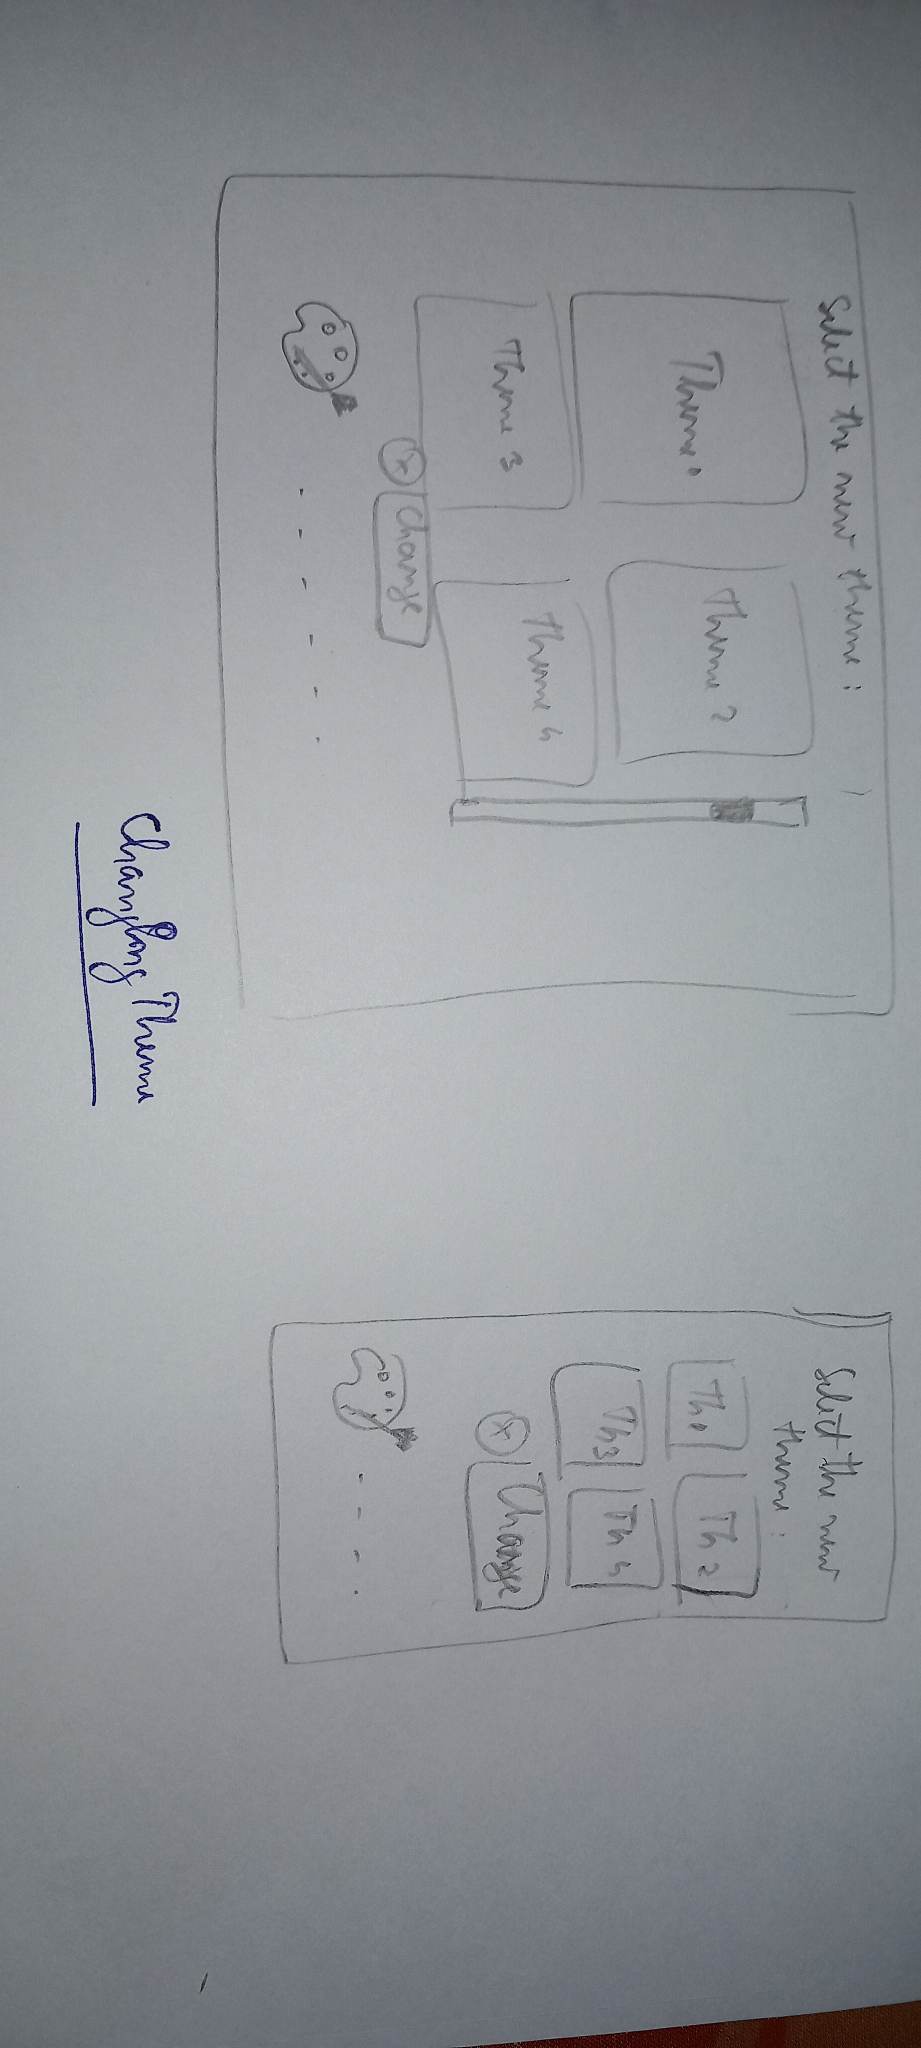 Select the new theme:
Theme 1
Theme 2
Theme 3
Theme 4
x
Change
Select the new
theme:
Th1
Th2
Th3
Th4
x
Change
Changing Theme